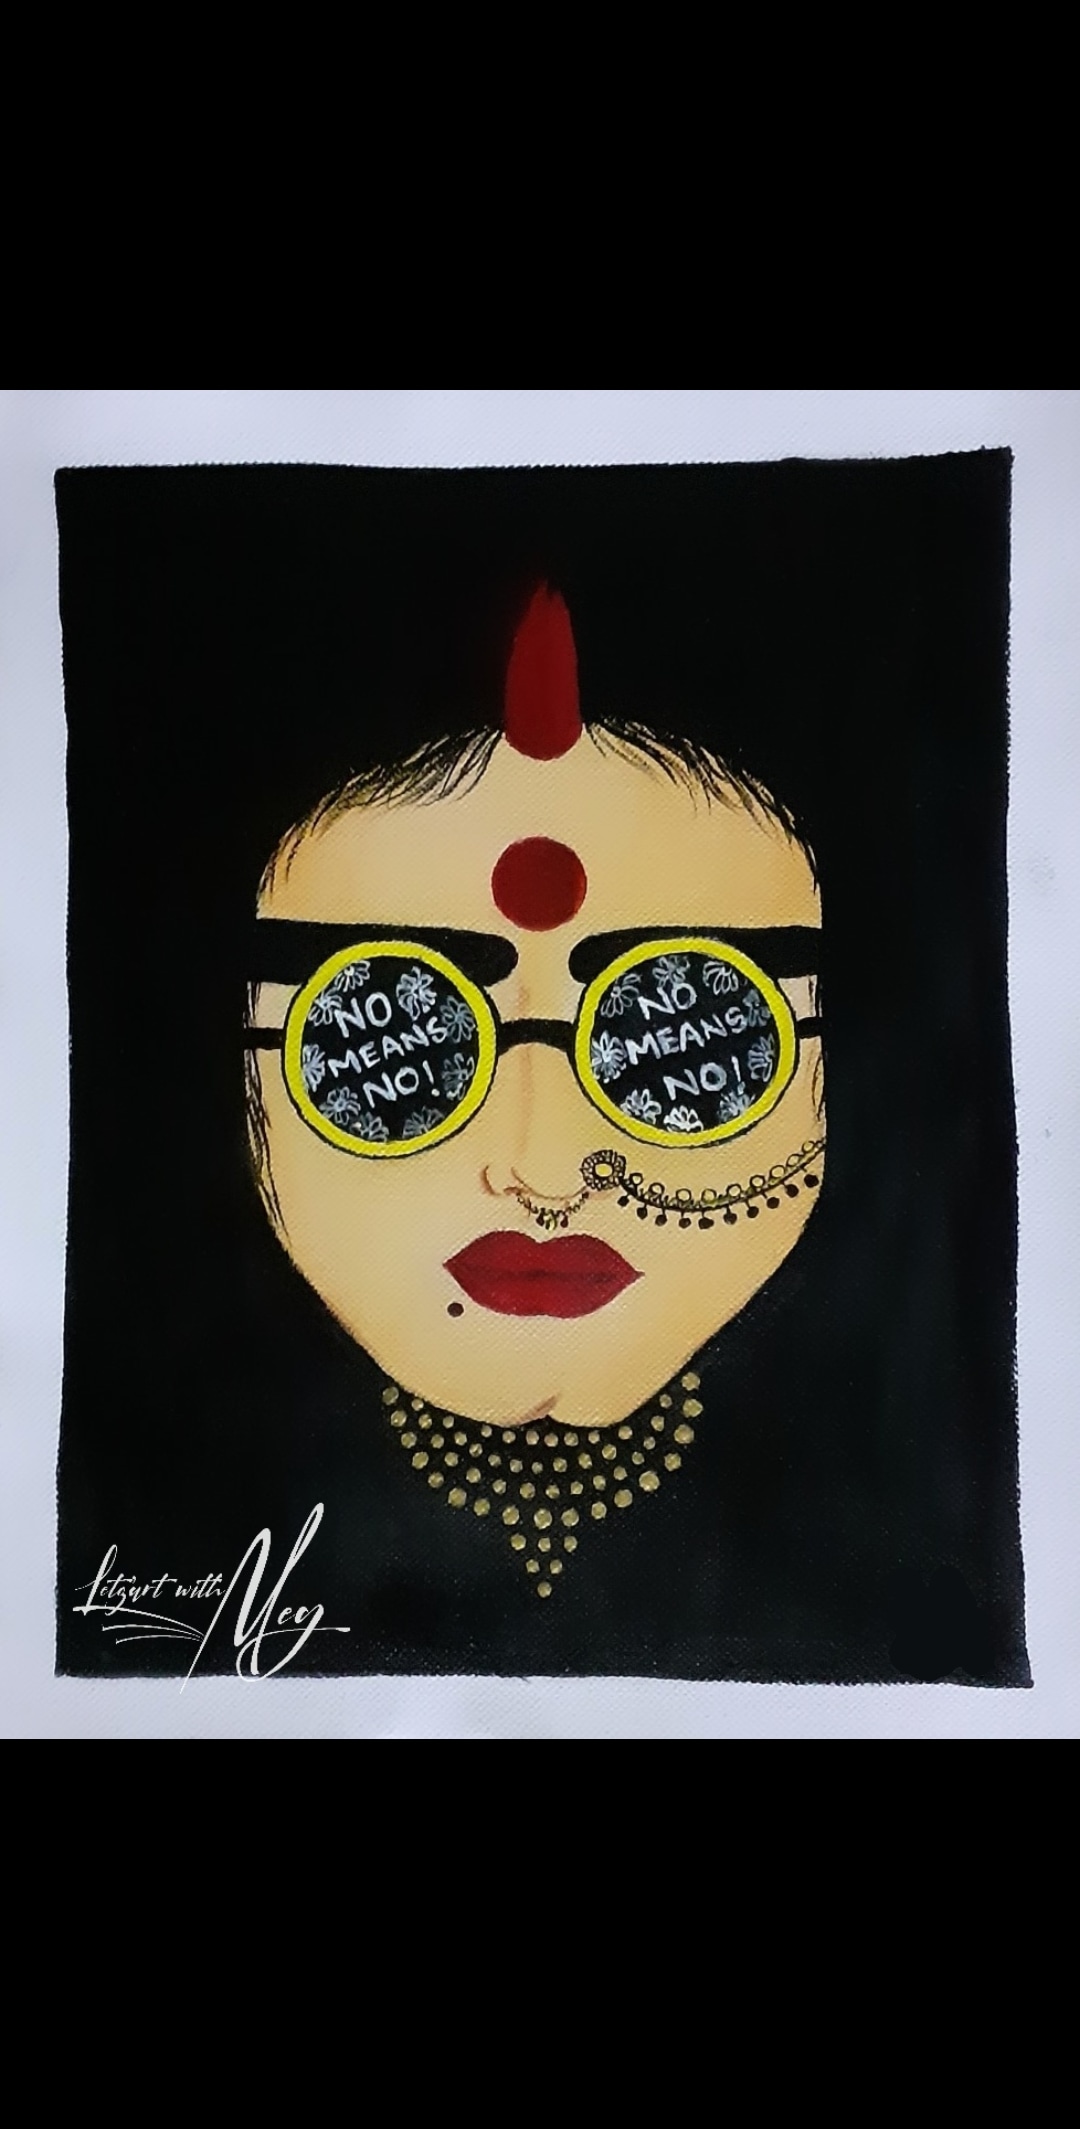 NO
MEANS
NO!
NO
MEANS
NO!
Letz'art with Mey